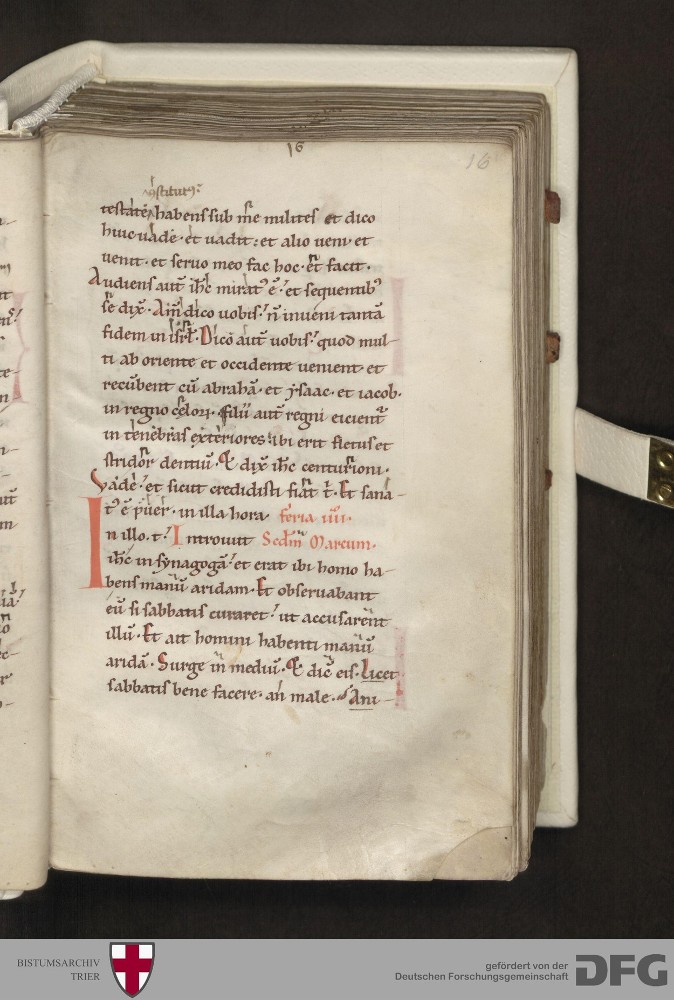 16
16
ɔstitutꝰ
testatē habens sub me milites et dico
huic uade · et uadit : et alio ueni · et
uenit · et seruo meo fac hoc · et facit ·
Audiens aut̄ ihc̄ miratꝰ ē · et sequentibꝰ
se dix̄ · Am̄ dico uobis · n̄ inueni tantā
fidem in isrl̄ · Dico aut̄ uobis · quod mul-
ti ab oriente et occidente uenient et
recūbent cū abrahā · et ysaac · et iacob ·
in regno celoꝝ · Filii aut̄ regni eicient᷑
in tenebras exteriores · ibi erit fletus et
stridor dentiū · Et dix̄ ihc̄ centurioni ·
Vade · et sicut credidisti fiat t̄ · Et sana-
tꝰ ē puer · in illa hora feria iiii ·
In illo · t̄ · Introiuit Scdm̄ Marcum ·
ihc̄ in synagogā · et erat ibi homo ha-
bens manū aridam · Et obseruabant
eū si sabbatis curaret · ut accusarent
illū · Et ait homini habenti manū
aridā · Surge in mediū · Et dic̄ eis · Licet
sabbatis bene facere · an male · Ani-
BISTUMSARCHIV
TRIER
gefördert von der
Deutschen Forschungsgemeinschaft
DFG